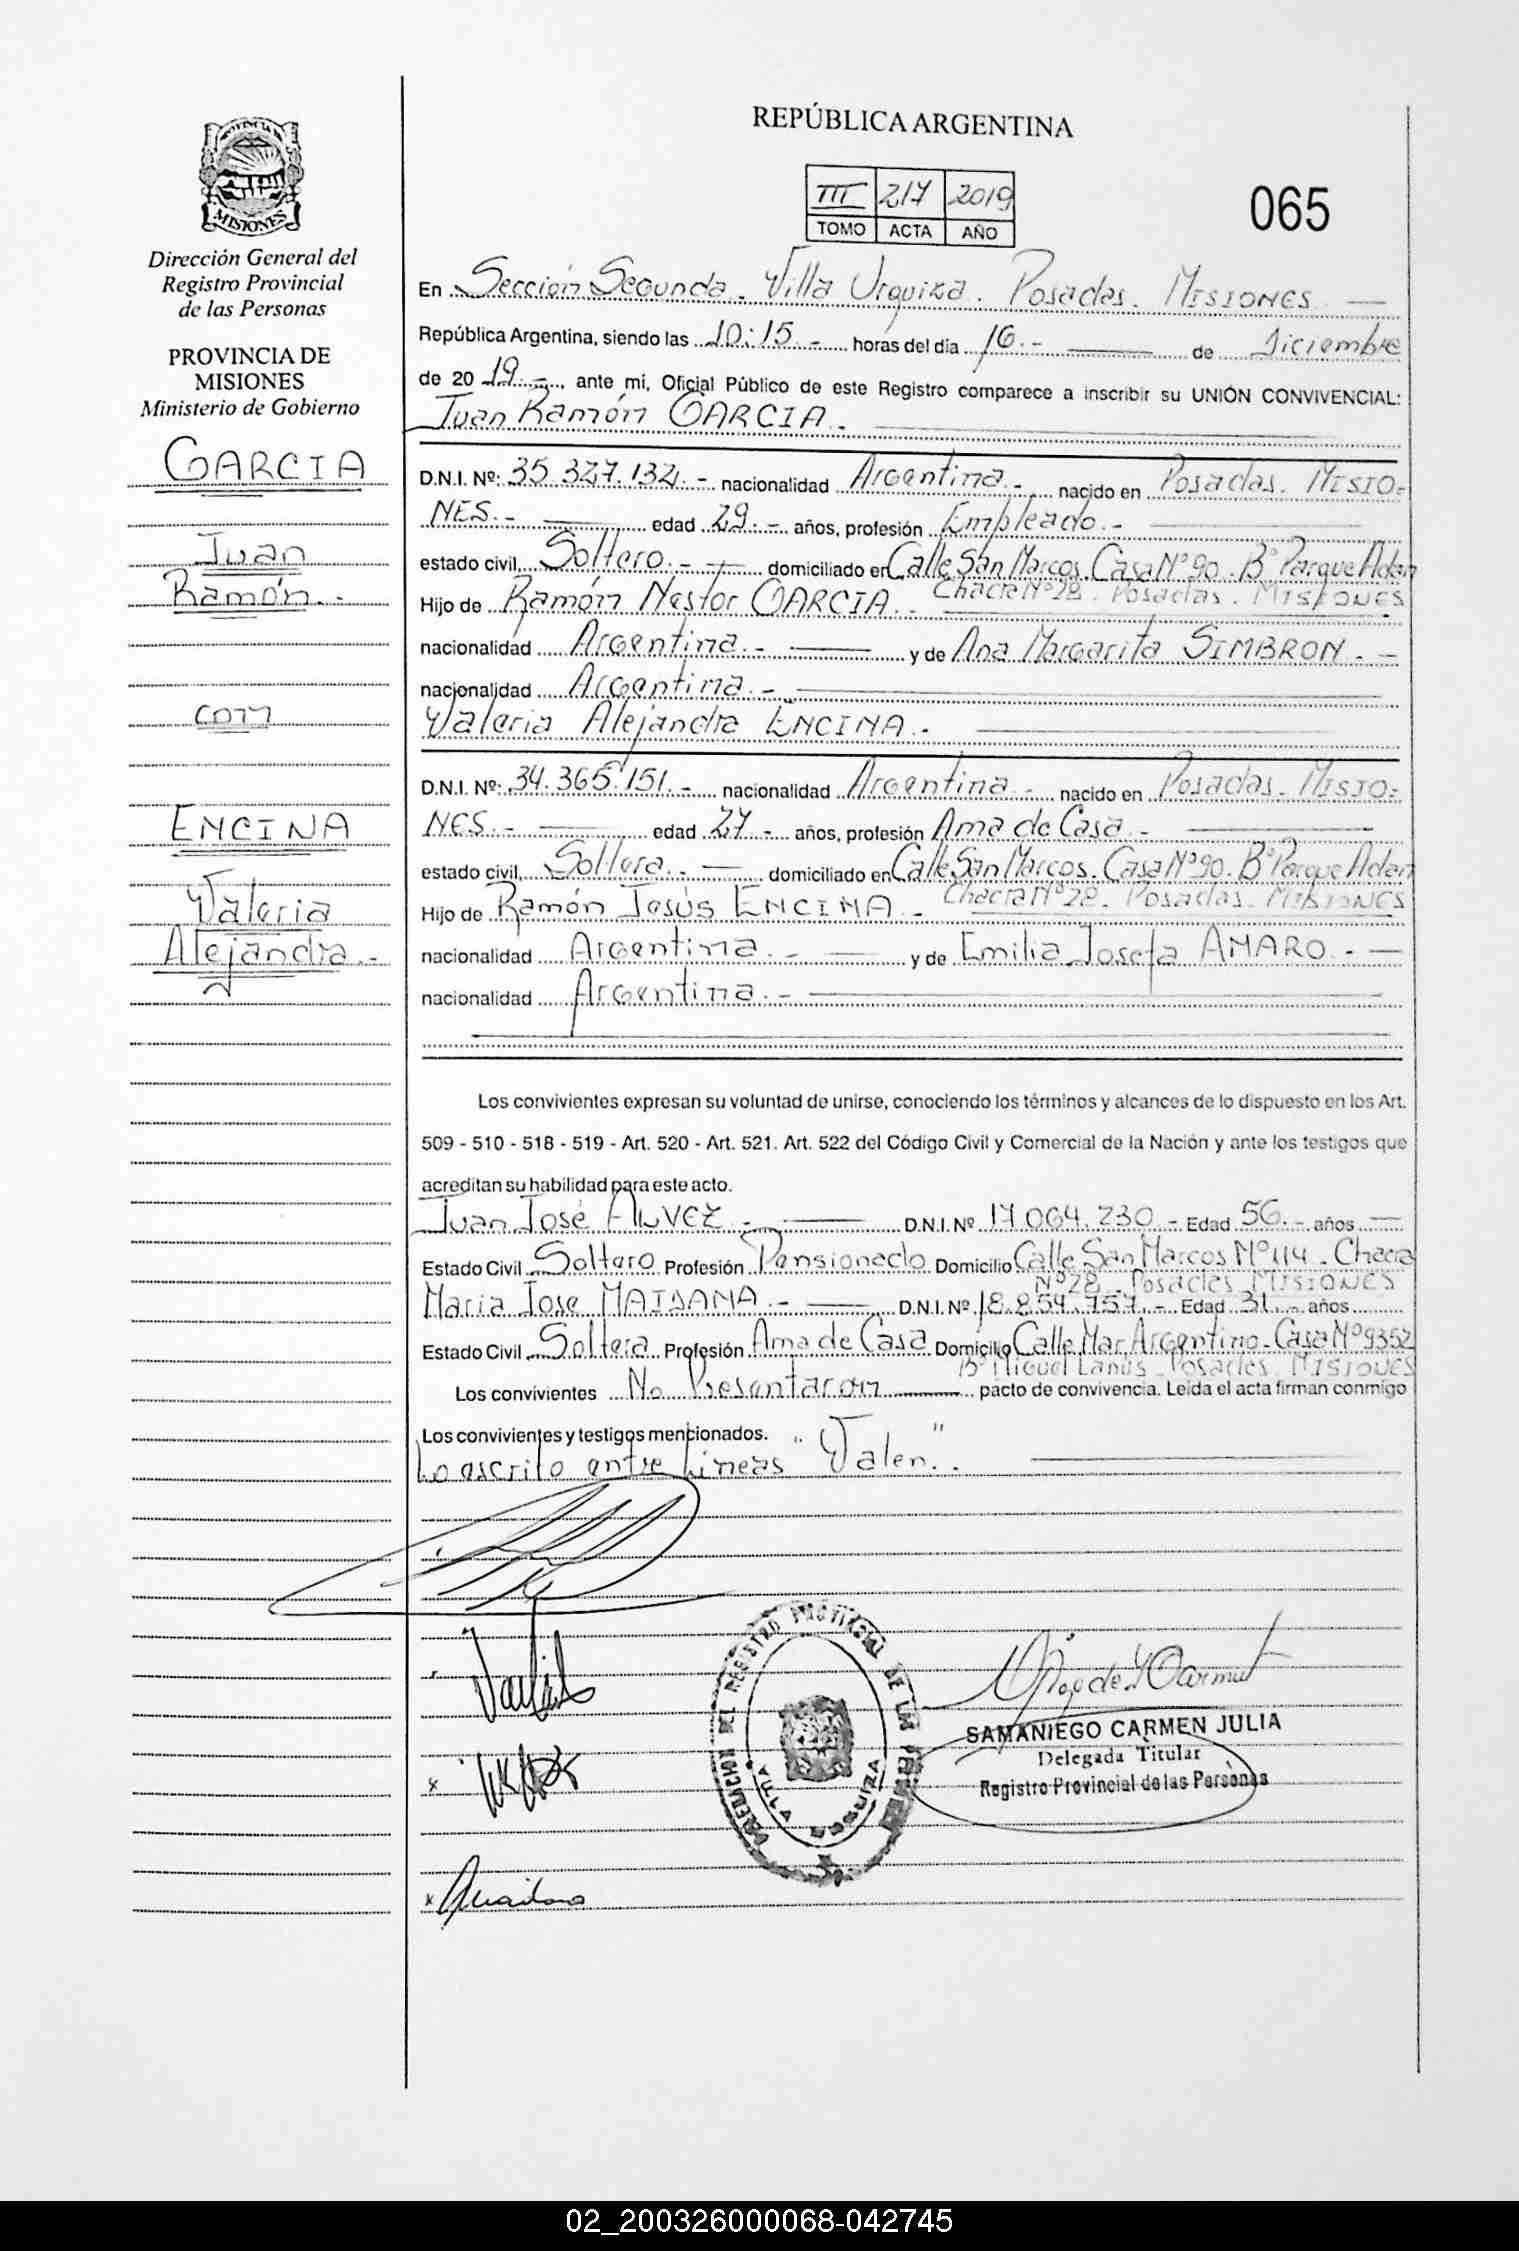 REPÚBLICA ARGENTINA
III 217 2019
TOMO ACTA AÑO
065
PROVINCIA DE
MISIONES
Dirección General del
Registro Provincial
de las Personas
PROVINCIA DE
MISIONES
Ministerio de Gobierno
GARCIA
Juan
Ramón.-
con
ENCINA
Valeria
Alejandra.-
En Sección Segunda. Villa Urquiza. Posadas. MISIONES
República Argentina, siendo las 10:15.- horas del día 16.- de Diciembre
de 20 19.-, ante mí, Oficial Público de este Registro comparece a inscribir su UNIÓN CONVIVENCIAL:
Juan Ramón GARCIA.-
D.N.I. Nº: 35.327.132.- nacionalidad Argentina.- nacido en Posadas. MISIO=
NES.- edad 29.- años, profesión Empleado.-
estado civil, Soltero.- domiciliado en Calle San Marcos. Casa Nº 90. Bº Parque Adam
Chacra Nº 28. Posadas. MISIONES
Hijo de Ramón Nestor GARCIA.-
nacionalidad Argentina.- y de Ana Margarita SIMBRON.-
nacionalidad Argentina.-
Valeria Alejandra ENCINA.-
D.N.I. Nº: 34.365.151.- nacionalidad Argentina.- nacido en Posadas. MISIO=
NES.- edad 27.- años, profesión Ama de Casa.-
estado civil, Soltera.- domiciliado en Calle San Marcos. Casa Nº 90. Bº Parque Adam
Chacra Nº 28. Posadas. MISIONES
Hijo de Ramón Jesús ENCINA.-
nacionalidad Argentina.- y de Emilia Josefa AMARO.-
nacionalidad Argentina.-
Los convivientes expresan su voluntad de unirse, conociendo los términos y alcances de lo dispuesto en los Art.
509 - 510 - 518 - 519 - Art. 520 - Art. 521. Art. 522 del Código Civil y Comercial de la Nación y ante los testigos que
acreditan su habilidad para este acto.
Juan José ALVEZ.- D.N.I. Nº 17.064.230.- Edad 56.- años
Estado Civil Soltero Profesión Pensionado Domicilio Calle San Marcos Nº 114. Chacra
Nº 28. Posadas MISIONES
Maria Jose MAIDANA.- D.N.I. Nº 18.854.757.- Edad 31.- años
Estado Civil Soltera Profesión Ama de Casa Domicilio Calle Mar Argentino. Casa Nº 9352
Bº Miguel Lanús Posadas MISIONES
Los convivientes No Presentaron pacto de convivencia. Leída el acta firman conmigo
Los convivientes y testigos mencionados.
Lo escrito entre Lineas "Valen".
SAMANIEGO CARMEN JULIA
Delegada Titular
Registro Provincial de las Personas
DELEGACION DEL REGISTRO PROVINCIAL DE LAS
VILLA URQUIZA
02_200326000068-042745